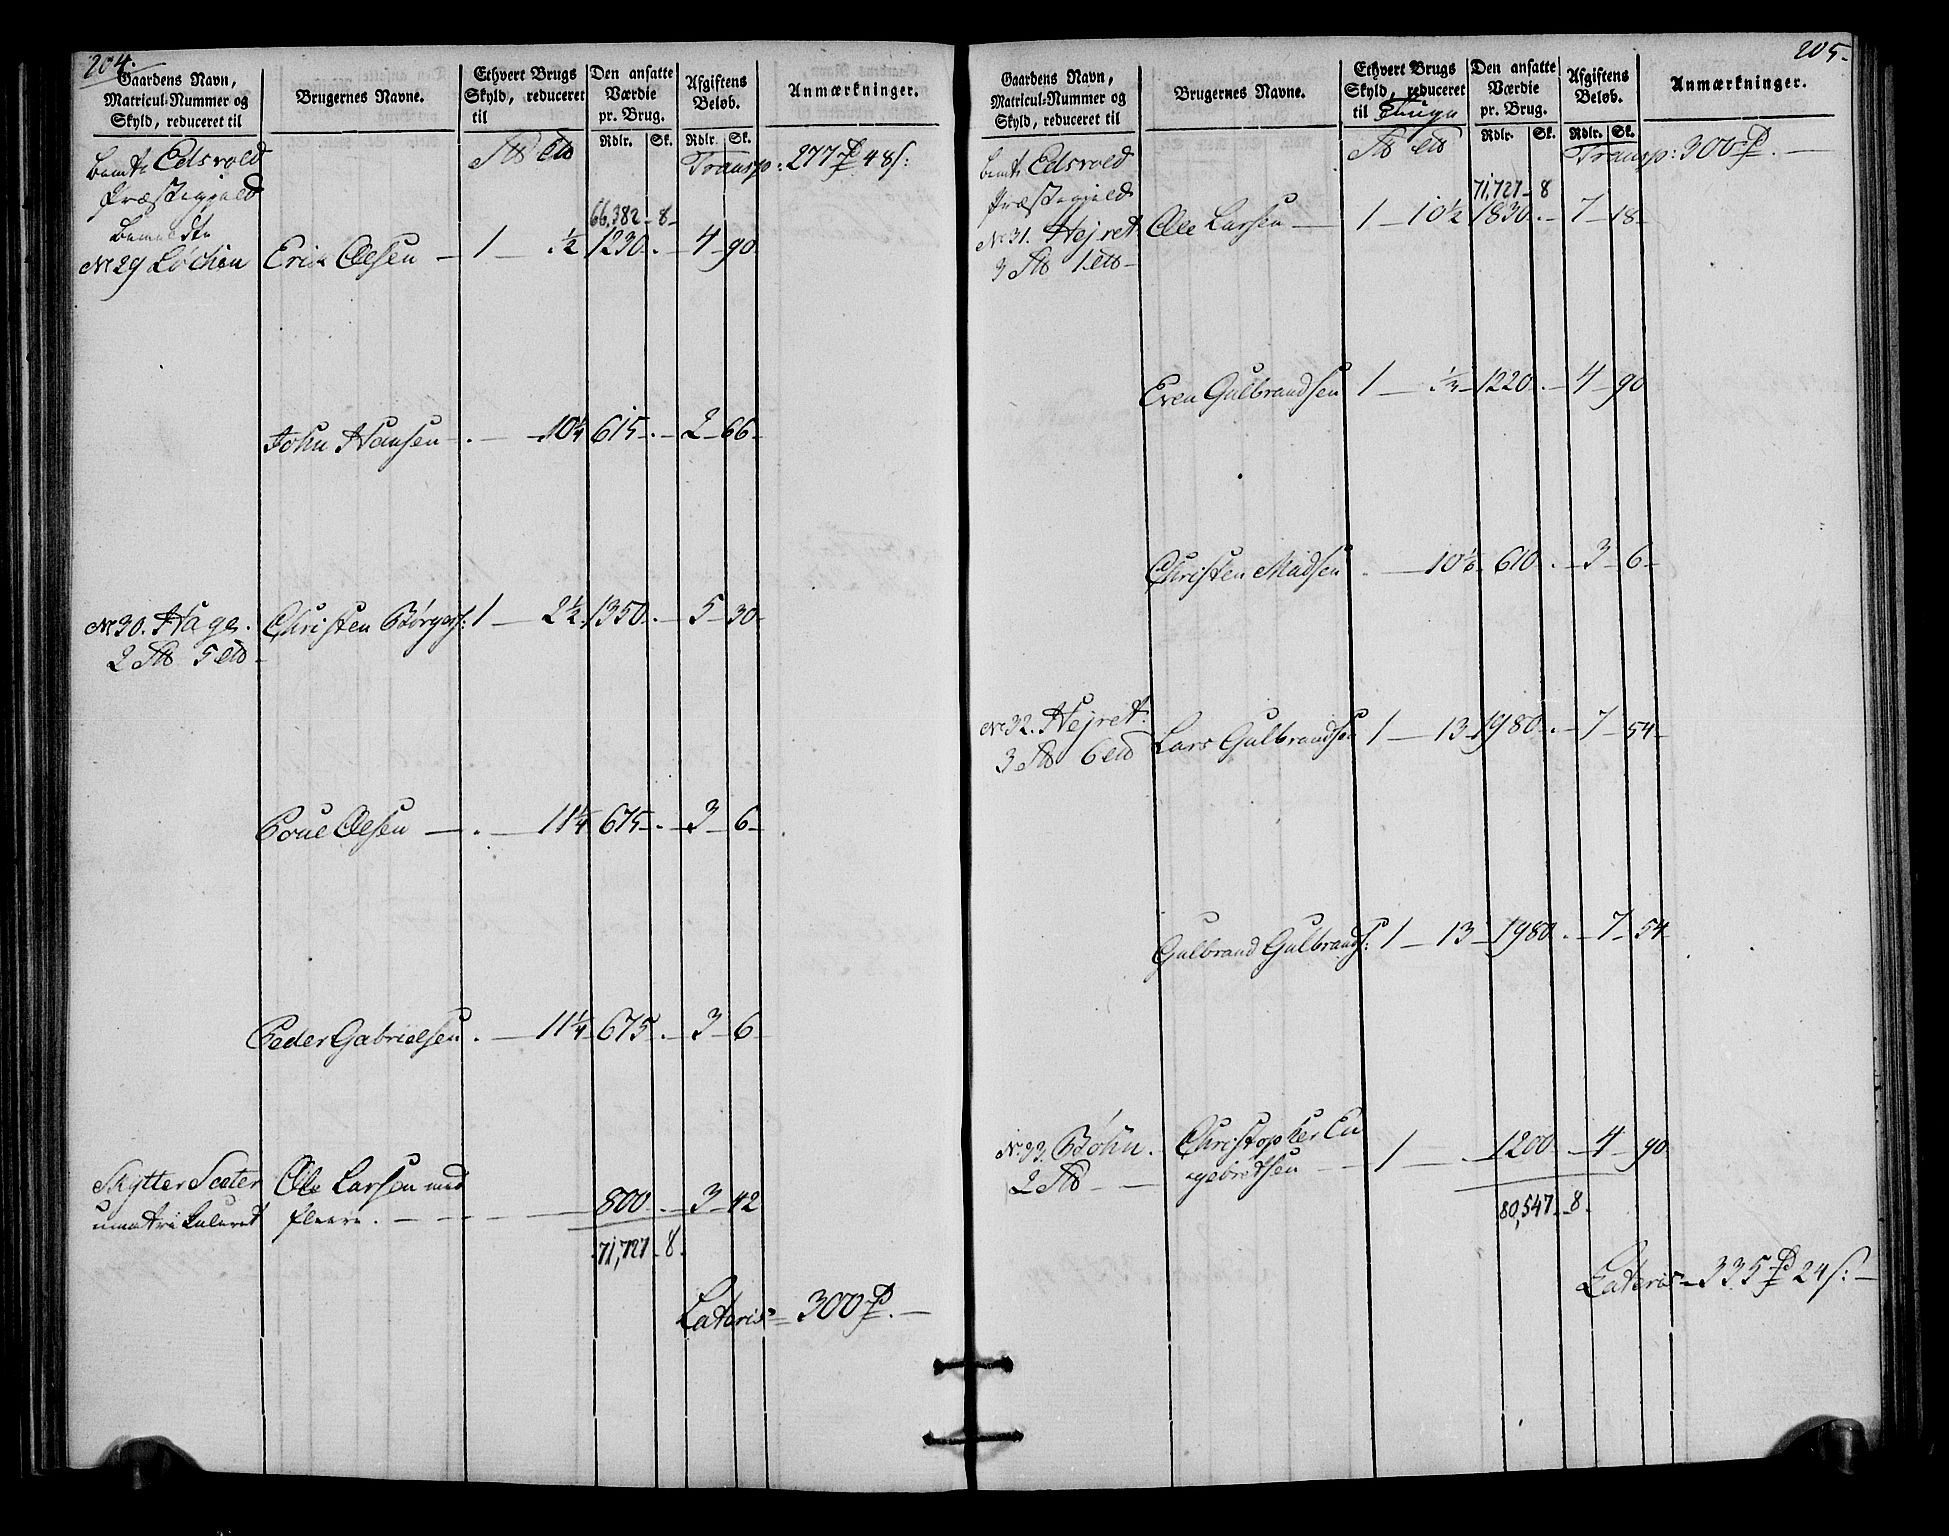 204.
Gaardens Navn,
Matricul-Nummer og
Skyld, reduceret til
Brugernes Navne.
Ethvert Brugs
Skyld, reduceret
til
Den ansatte
Værdie
pr. Brug.
Rdlr. Sk.
Afgiftens
Beløb.
Rdlr. Sk.
Anmærkninger.
Bemte Edsvold
Præstegjeld
Transp: 277 48 s:
66,382 - 8 -
Bemeldte
No 29 Løchen Erick Olesen — 1 — . ½ 1230 - . - 4 - 90
John Hansen - . - - 10¼ 615 - . - 2 - 66 -
No 30. Hage. Christen Børges: 1 — 2½ 1350 - . - 5 - 30 -
2 5
Poul Olesen — . — 11¼ 675 - . - 3 - 6 -
Peder Gabrielsen . — 11¼ 675 . - 3 - 6 -
Skytter Seeter Ole Larsen med
umatriculeret fleere . — — — 800 - . - 3 - 42
71,727 - 8 .
Lateris = 300 . —
205.
Gaardens Navn,
Matricul-Nummer og
Skyld, reduceret til
Brugernes Navne.
Ethvert Brugs
Skyld, reduceret
til Tunge
Den ansatte
Værdie
pr. Brug.
Rdlr. Sk.
Afgiftens
Beløb.
Rdlr. Sk.
Anmærkninger.
Bemte Edsvold
Præstegjeld
Transp: 300 . —
71,727 - 8
No 31. Hejret Ole Larsen — 1 — 10½ 1830 - . - 7 - 18 -
3 1
Even Gulbrandsen 1 — . ⅓ - 1220 - . - 4 - 90
Christen Madsen . — 10⅙ 610 . - 3 - 6 -
No 32. Hejret. Lars Gulbrandsen 1 — 13 - 1980 - . - 7 - 54 -
3 6
Gulbrand Gulbrands: 1 — 13 - 1980 . - 7 - 54
No. 33. Bøhn. Christopher En
2 gebretsen — 1 — . - 1200 - 4 - 90
80,547 - 8 .
Lateris = 335 24 s: —